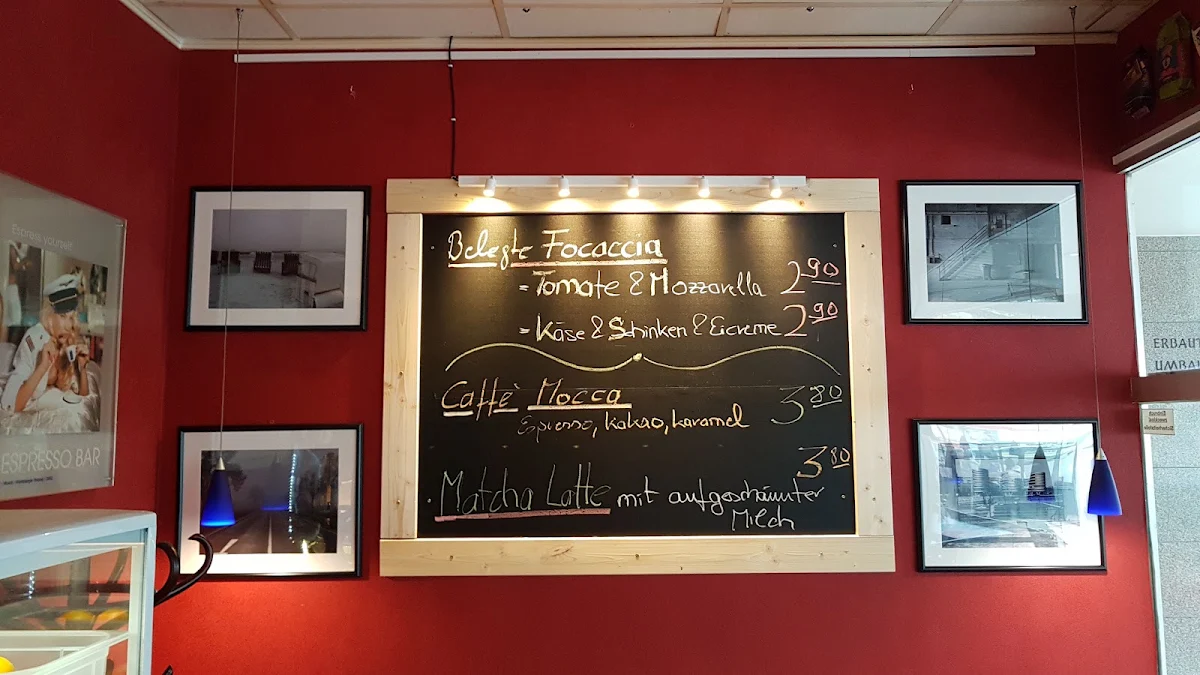 Express yourself
ESPRESSO BAR
Belegte Focaccia
- Tomate & Mozzarella 2 90
- Käse & Schinken & Eicreme 2 90
Caffè Mocca 3 80
Espresso, Kakao, Karamel
3 80
Matcha Latte mit aufgeschäumter
Milch
ERBAUT
UMBAU